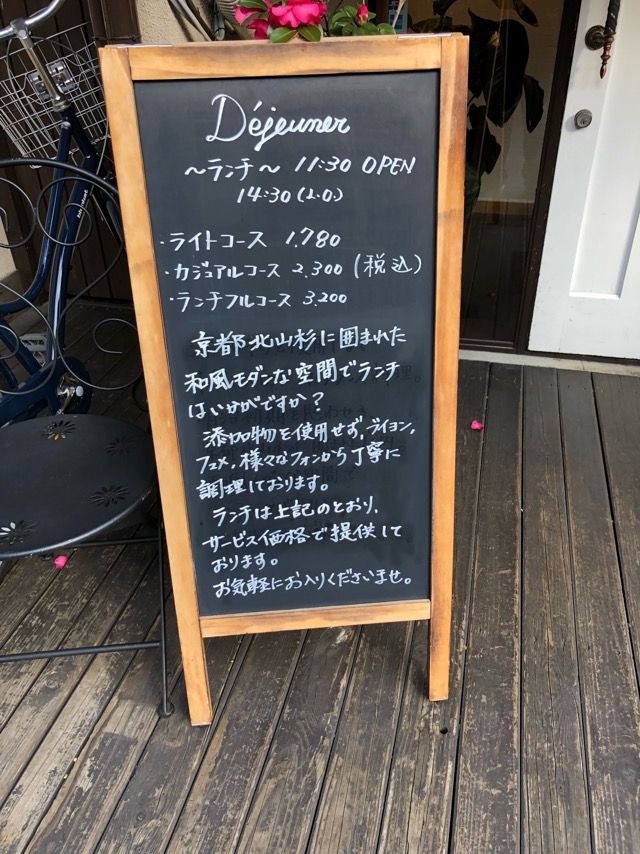 Déjeuner
～ランチ～ 11:30 OPEN
14:30 (L.O.)
・ライトコース 1,780
・カジュアルコース 2,300 (税込)
・ランチフルコース 3,200
京都北山杉に囲まれた
和風モダンな空間でランチ
はいかがですか?
添加物を使用せず、ブイヨン、
フュメ、様々なフォンから丁寧に
調理しております。
ランチは上記のとおり、
サービス価格で提供して
おります。
お気軽にお入りくださいませ。